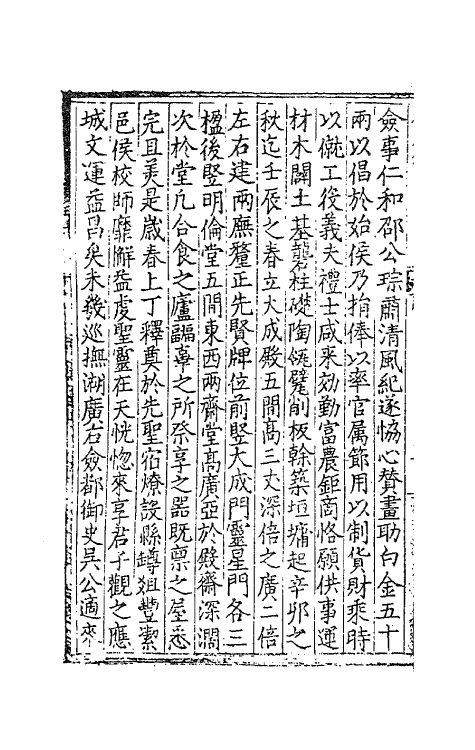 僉事仁和邵公琮肅清風紀遂恊心賛畫助白金五十
兩以倡於始侯乃捐俸以率官属節用以制貨財乘時
以僦工役義夫禮士咸来効勤富農鉅商恪願供事運
材木闢土基礱柱礎陶瓴甓削板幹築垣墉起辛夘之
秋迄壬辰之春立大成殿五間髙三丈深倍之廣二倍
左右建兩廡釐正先賢牌位前竪大成門靈星門各三
楹後竪明倫堂五間東西兩齋堂髙廣亞於殿齋深濶
次於堂凡合食之廬諞事之所祭享之器既禀之屋悉
完且美是嵗春上丁釋奠於先聖宿燎設縣罇俎豐潔
邑侯校師靡懈益虔聖靈在天恍惚來享君子觀之應
城文運益昌矣未幾巡撫湖廣右僉都御史吳公適來